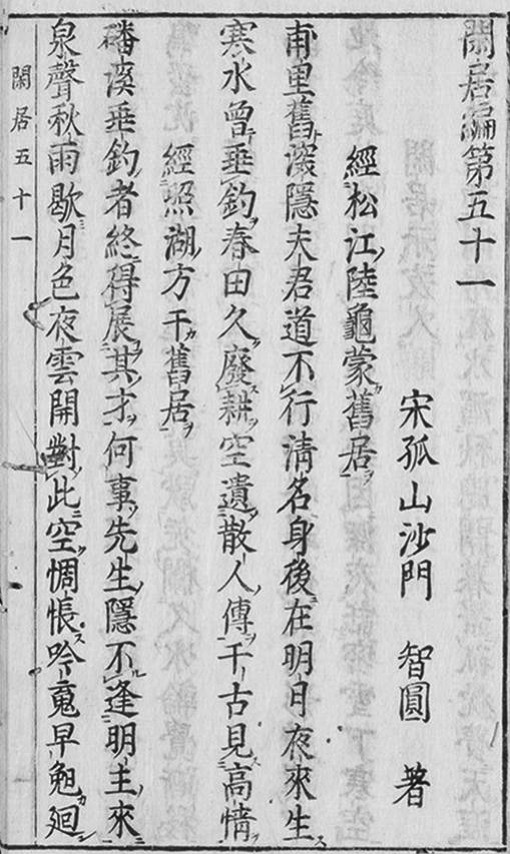 閑居編第五十一
宋孤山沙門　智圓　著
經松江陸龜蒙舊居
甫里舊深隱夫君道不行清名身後在明月夜來生
寒水曾垂釣春由久廢耕空遺散人傳千古見高情
經照湖方干舊居
磻溪垂釣者終得展其才何事先生隱不逢明主來
泉聲秋雨歇月色夜雲開對此空惆悵吟䰟早廻
閑居五十一